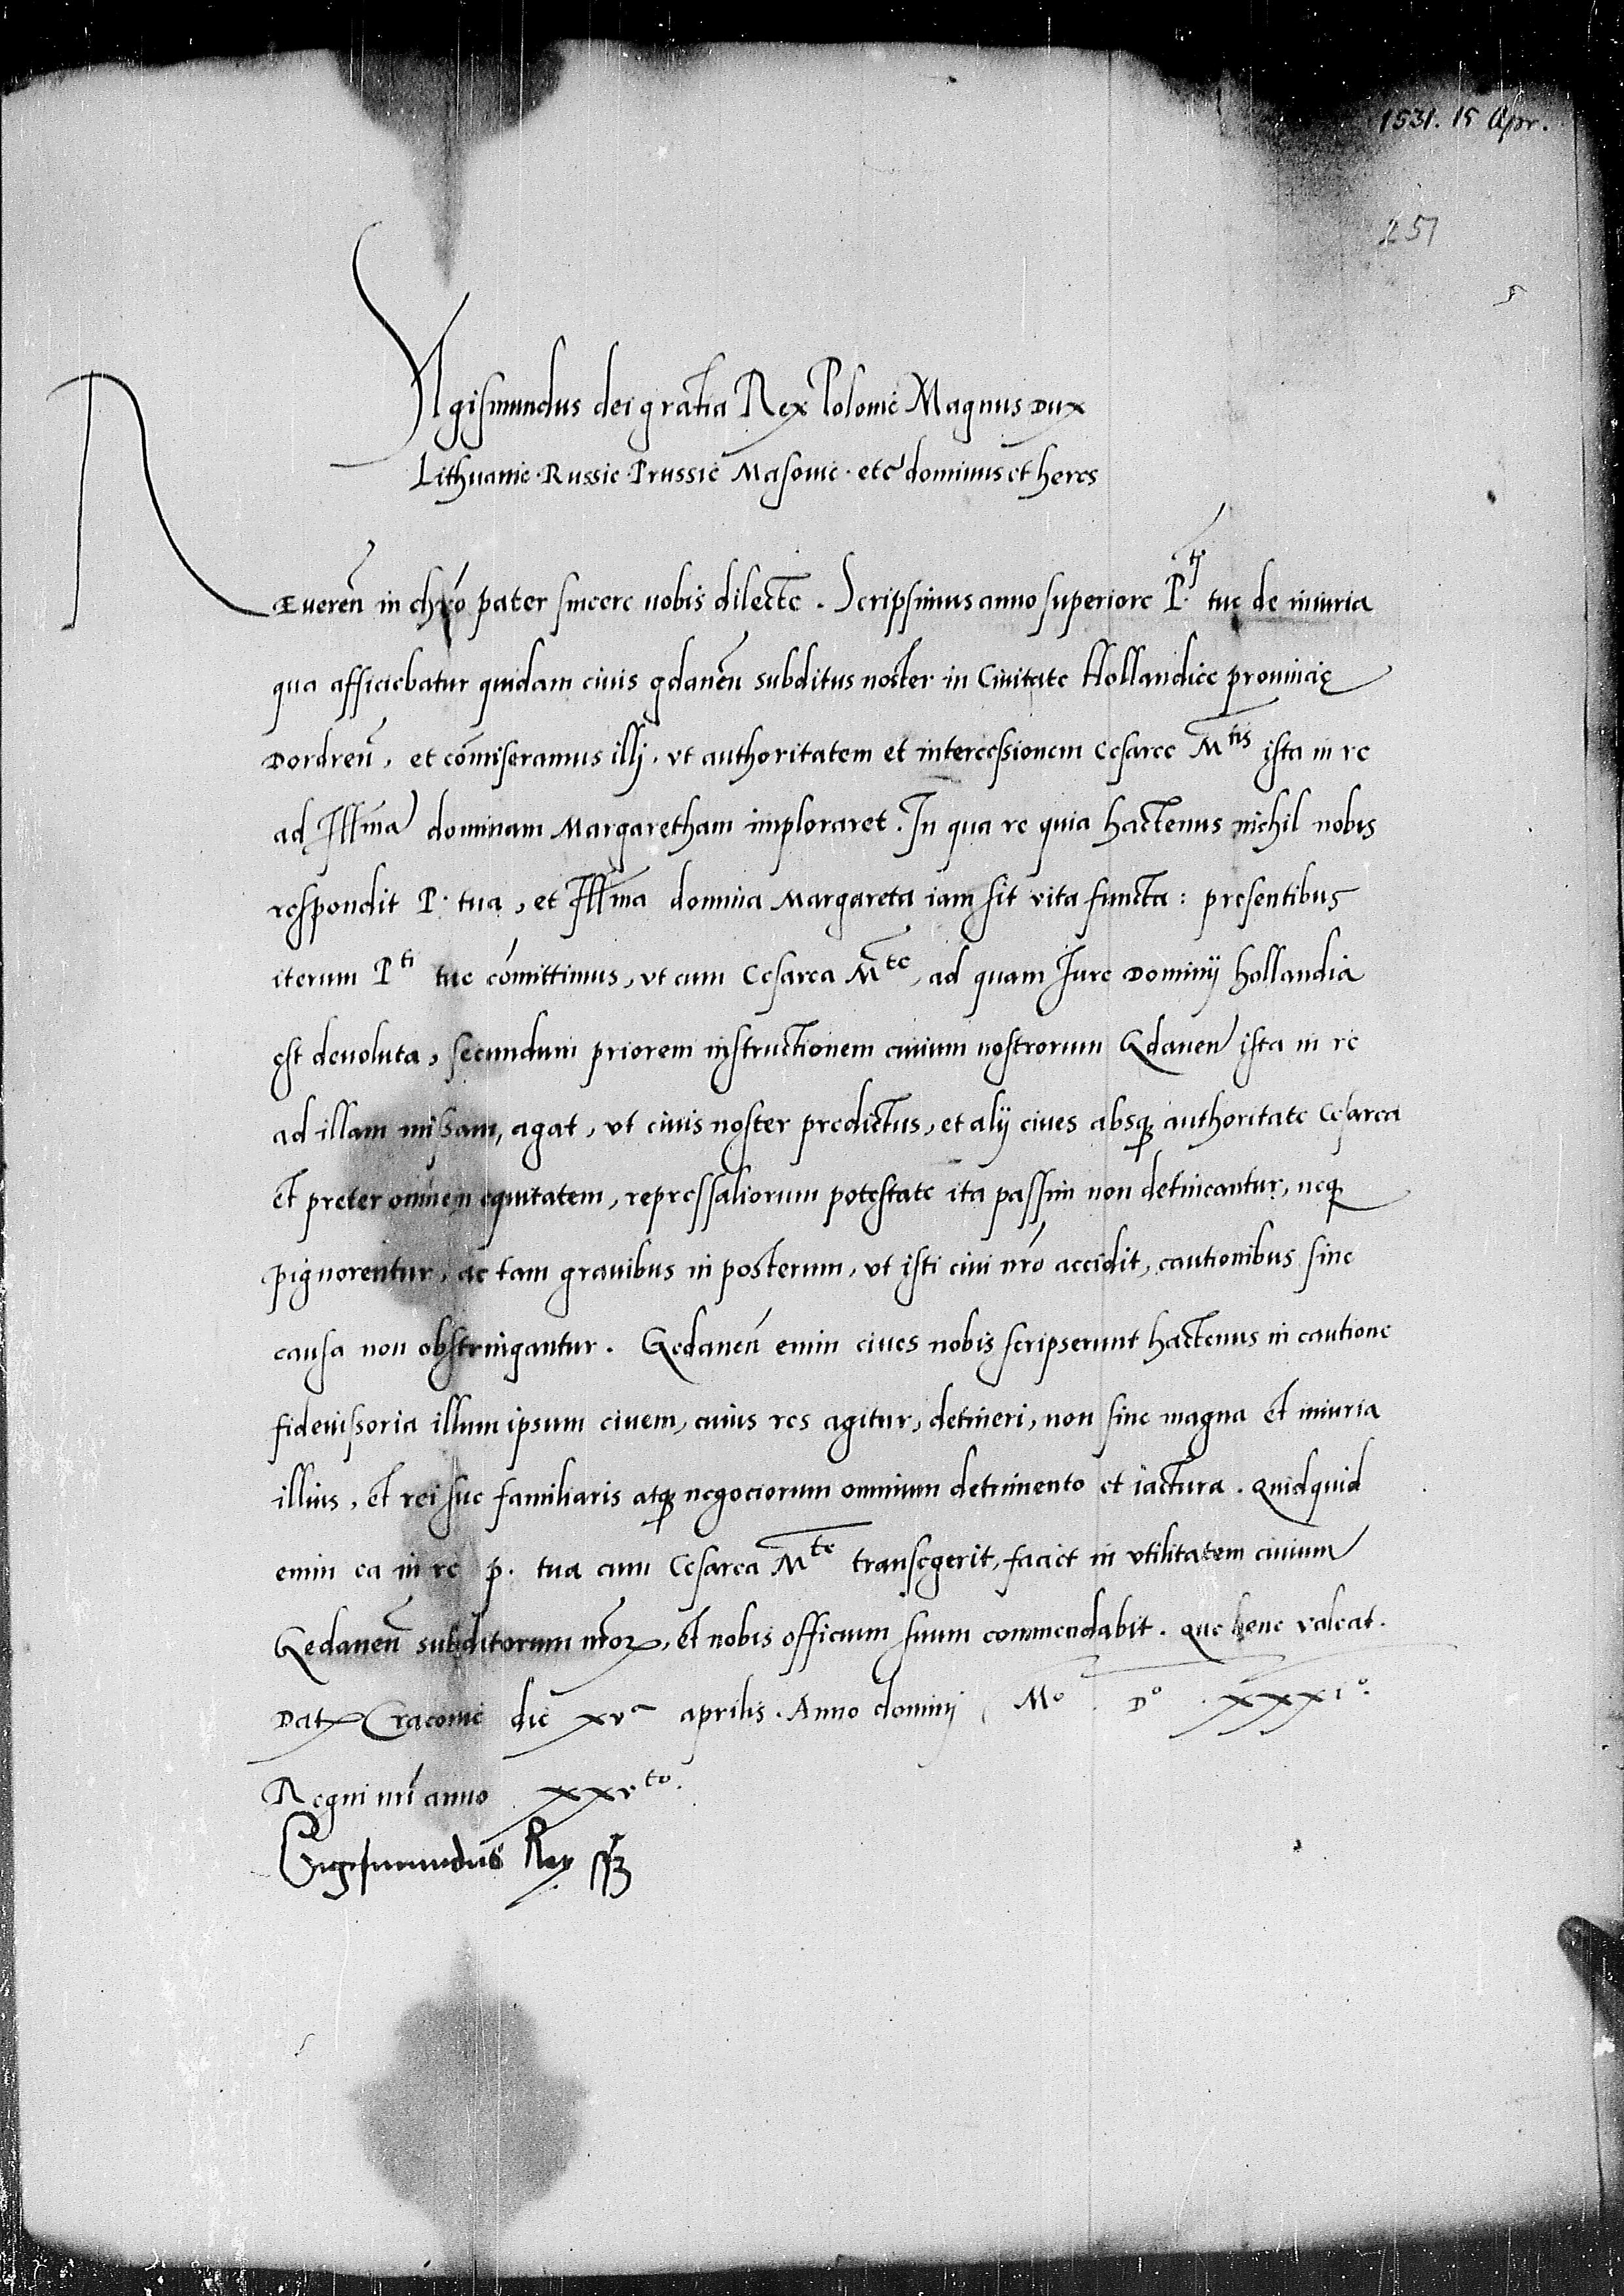 1531. 15 Apr.
251
Sigismundus dei gratia Rex Polonie Magnus Dux
Lithuanie · Russie · Prussie Masovie · etc̃ dominus et heres
Reueren̄ in chr̄o pater sincere nobis dilecte. Scripsimus anno superiore P.ti tue de iniuria
qua afficiebatur quidam ciuis gdaneñ subditus noster in Ciuitate Hollandice prouincię
Dordreñ, et com̄iseramus illi, vt authoritatem et intercessionem Cesaree Mtis ista in re
ad Illm̄a dominam Margaretham imploraret. In qua re quia hactenus nichil nobis
respondit P. tua, et Illm̄a domina Margareta iam sit vita functa: presentibus
iterum Pti tue com̄ittimus, vt cum Cesarea Mte, ad quam Iure Dominij hollandia
est deuoluta, secundum priorem instructionem ciuium nostrorum Gdaneñ ista in re
ad illam missam, agat, vt ciuis noster predictus, et alij ciues absqꝫ authoritate Cesarea
et preter omnem equitatem, repressaliorum potestate ita passim non detineantur, neqꝫ
pignorentur, ac tam grauibus in posterum, vt isti ciui nr̄o accidit, cautionibus sine
causa non obstringantur. Gedaneñ enim ciues nobis scripserunt hactenus in cautione
fideiussoria illum ipsum ciuem, cuius res agitur, detineri, non sine magna et iniuria
illius, et rei sue familiaris atqꝫ negociorum omnium detrimento et iactura. Quidquid
enim ea in re p. tua cum Cesarea Mte transegerit, faciet in vtilitatem ciuium
Gedaneñ subditorum nr̄oꝝ, et nobis officium suum commendabit. Que bene valeat.
Datꝭ Cracouie die xva aprilis. Anno dominj Mo. Do. xxxio.
Regni nr̄i anno xxvto.
Sigismundus Rex ssz